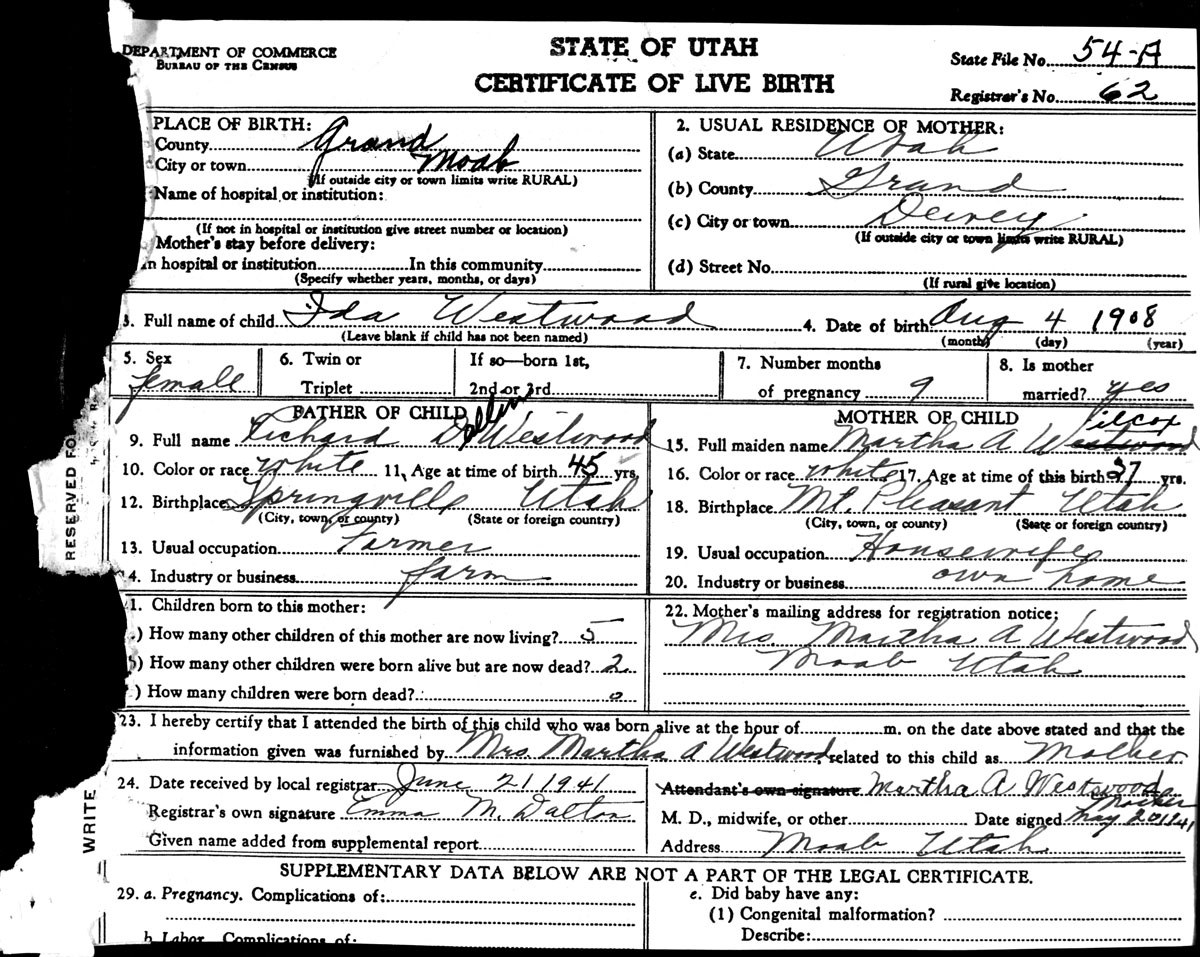 DEPARTMENT OF COMMERCE
BUREAU OF THE CENSUS
STATE OF UTAH
CERTIFICATE OF LIVE BIRTH
State File No. 54-A
Registrar's No. 62
PLACE OF BIRTH:
County Grand
City or town Moab
(If outside city or town limits write RURAL)
Name of hospital or institution:
(If not in hospital or institution give street number or location)
Mother's stay before delivery:
In hospital or institution In this community
(Specify whether years, months, or days)
2. USUAL RESIDENCE OF MOTHER:
(a) State Utah
(b) County Grand
(c) City or town Dewey
(If outside city or town limits write RURAL)
(d) Street No.
(If rural give location)
3. Full name of child Ida Westwood 4. Date of birth Aug 4 1908
(Leave blank if child has not been named) (month) (day) (year)
5. Sex female
6. Twin or Triplet
If so—born 1st, 2nd or 3rd
7. Number months of pregnancy 9
8. Is mother married? yes
FATHER OF CHILD
9. Full name Richard D Allen Westwood
10. Color or race White 11. Age at time of birth 45 yrs.
12. Birthplace Springville Utah
(City, town, or county) (State or foreign country)
13. Usual occupation Farmer
14. Industry or business farm
MOTHER OF CHILD
15. Full maiden name Martha A Westwood Wilcox
16. Color or race white 17. Age at time of this birth 37 yrs.
18. Birthplace Mt. Pleasant Utah
(City, town, or county) (State or foreign country)
19. Usual occupation Housewife
20. Industry or business own home
1. Children born to this mother:
) How many other children of this mother are now living? 5
) How many other children were born alive but are now dead? 2
) How many children were born dead? 0
22. Mother's mailing address for registration notice:
Mrs. Martha A Westwood
Moab Utah
23. I hereby certify that I attended the birth of this child who was born alive at the hour of m. on the date above stated and that the
information given was furnished by Mrs. Martha A Westwood related to this child as Mother
24. Date received by local registrar June 21 1941
Registrar's own signature Emma M. Dalton
Given name added from supplemental report
Attendant's own signature Martha A Westwood
Mother
M. D., midwife, or other Date signed May 20 1941
Address Moab Utah.
RESERVED FO
WRITE
SUPPLEMENTARY DATA BELOW ARE NOT A PART OF THE LEGAL CERTIFICATE.
29. a. Pregnancy. Complications of:
b. Labor. Complications of:
e. Did baby have any:
(1) Congenital malformation?
Describe: